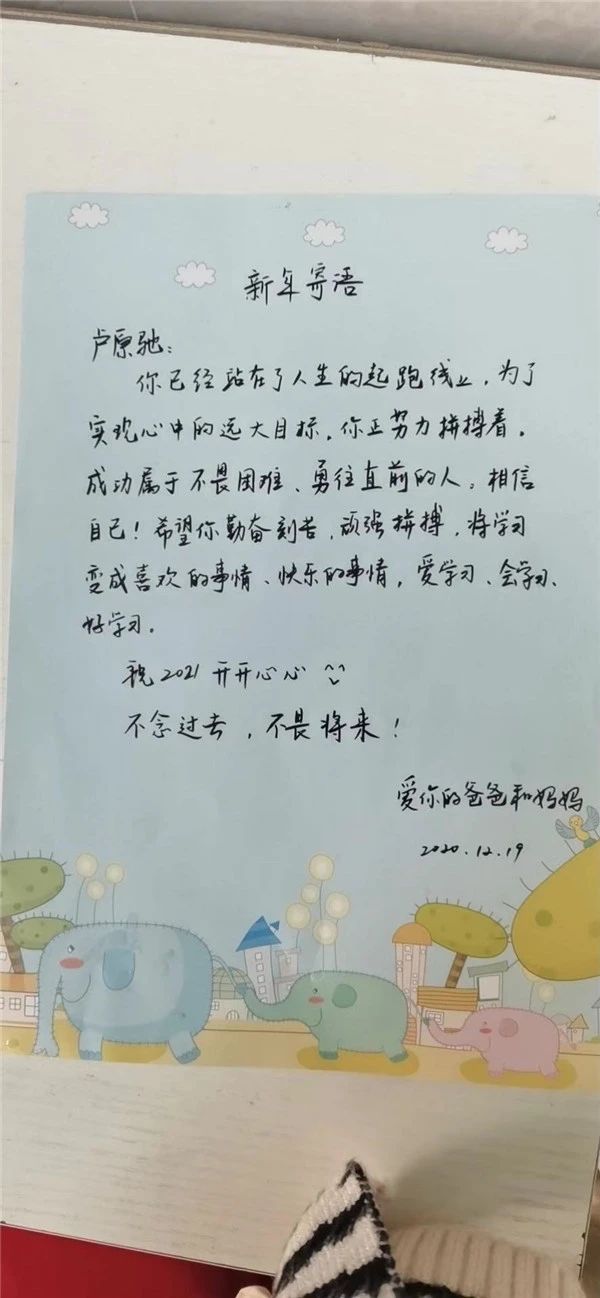 新年寄语
卢原驰：
你已经站在了人生的起跑线上，为了
实现心中的远大目标，你正努力拼搏着。
成功属于不畏困难、勇往直前的人，相信
自己！希望你勤奋刻苦，顽强拼搏，将学习
变成喜欢的事情、快乐的事情，爱学习、会学习、
好学习。
祝2021开开心心 ^^
不念过去，不畏将来！
爱你的爸爸和妈妈
2020.12.19